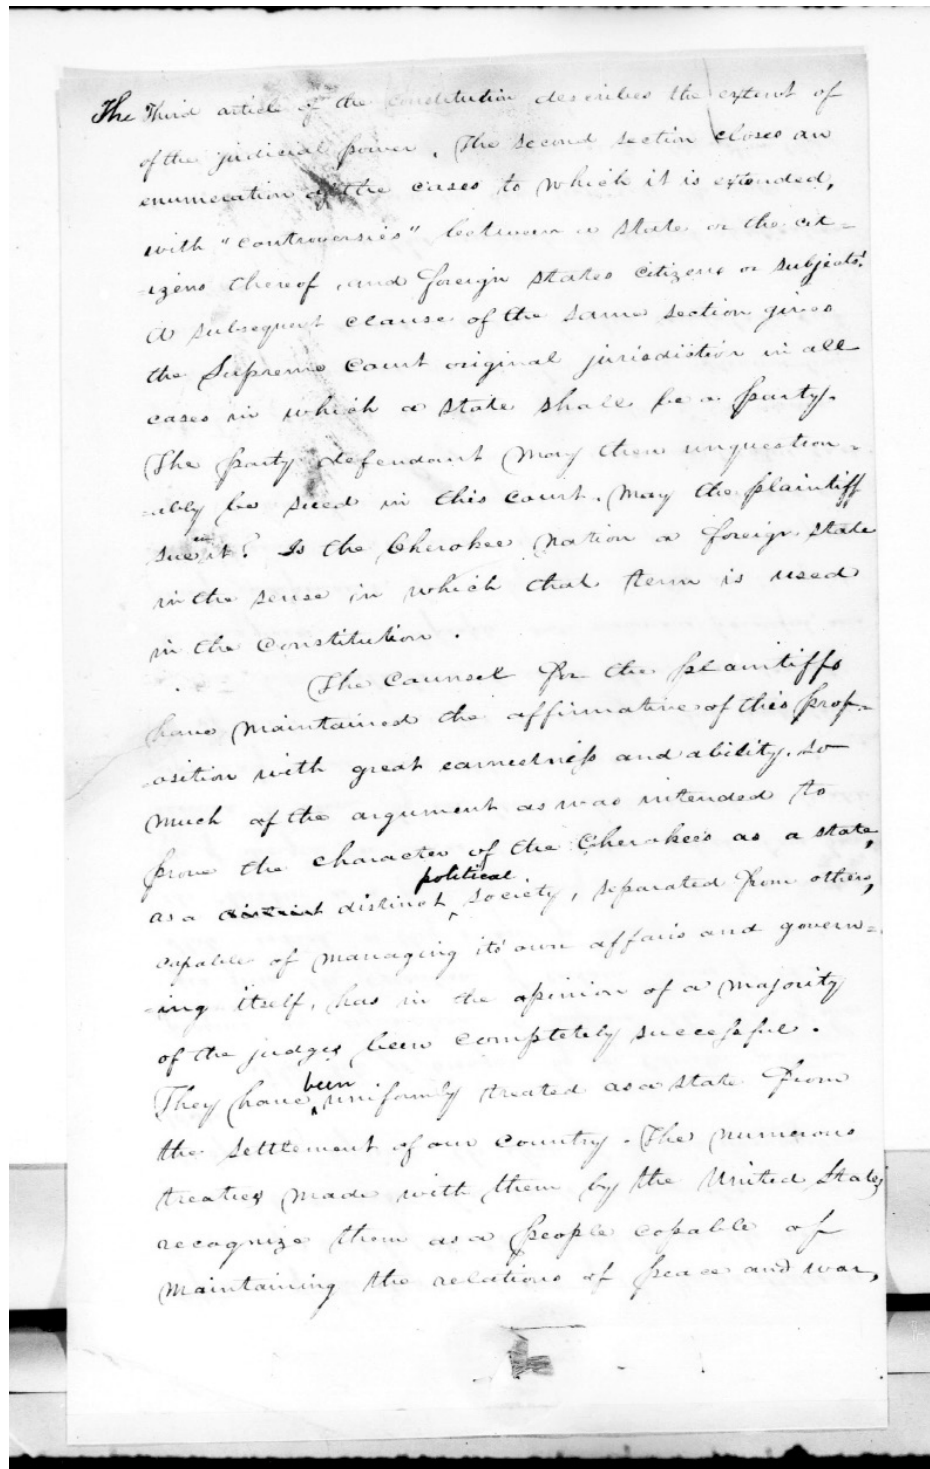 The Third article of the constitution describes the extent of
of the judicial power. The second section closes an
enumeration of the cases to which it is extended,
with "controversies" between a state or the cit-
-izens thereof, and foreign states citizens or subjects."
A subsequent clause of the same section gives
the Supreme Court original jurisdiction in all
cases in which a state shall be a party.
The party defendant may then unquestion-
-ably be sued in this court. May the plaintiff
sue in it? Is the Cherokee Nation a foreign state
in the sense in which that term is used
in the Constitution.
The Counsel for the plaintiffs
have maintained the affirmative of this prop-
-osition with great earnestness and ability. So
much of the argument as was intended to
prove the character of the Cherokees as a state,
as a distinct political society, separated from others,
capable of managing its own affairs and govern-
-ing itself, has in the opinion of a majority
of the judges been completely successful.
They have been uniformly treated as a state from
the settlement of our country. The numerous
treaties made with them by the United States
recognize them as a people capable of
maintaining the relations of peace and war,